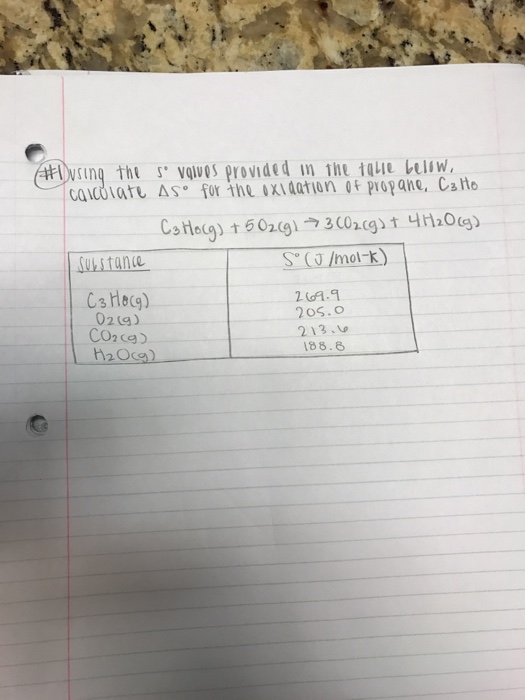 #1) Using the S° values provided in the table below,
calculate ΔS° for the oxidation of propane, C3H8
C3H8(g) + 5O2(g) → 3CO2(g) + 4H2O(g)
Substance S° (J/mol-K)
C3H8(g) 269.9
O2(g) 205.0
CO2(g) 213.6
H2O(g) 188.8